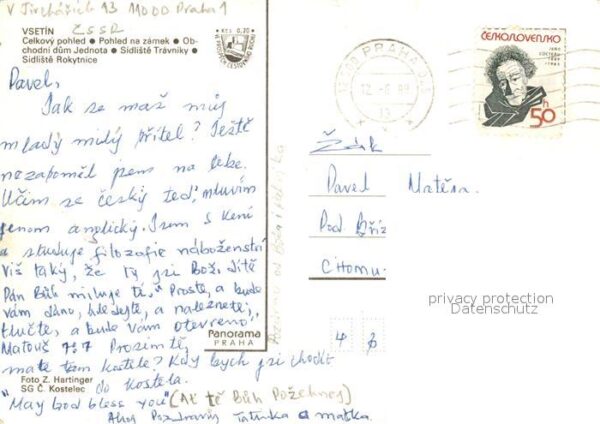 V Jirchářích 13 11000 Praha 1
VSETÍN ČSSR
Celkový pohled ● Pohled na zámek ● Ob-
chodní dům Jednota ● Sídliště Trávníky ●
Sídliště Rokytnice
Kčs 0,20
Pavel,
Jak se maš můj
mladý milý přítel? Ještě
nezapoměl jsem na tebe.
Učím se český teď, mluvím
jenom anglický. Jsem s
a studuje filozofie náboženství
Viš taký, že Ty jsi Boží dítě
Pán Bůh miluje tě, "Proste, a bude
vám dáno, hledejte, a naleznete;
tlučte, a bude vám otevřeno."
Matouš 7:7 Prosímtě,
mate tam kostele? Kdy bych jsi chodit
do kostela.
"May God bless you" (Ať tě Bůh Požehnej)
Ahoj Pozdravuj Tatínka a matka.
Panorama
PRAHA
Foto Z. Hartinger
SG Č. Kostelec
PRAHA
12.-6.89
ČESKOSLOVENSKO
JEAN
COCTEAU
1889
1963
50h
Žák
Pavel Matěna
Pod Bříz
Chomu
privacy protection
Datenschutz